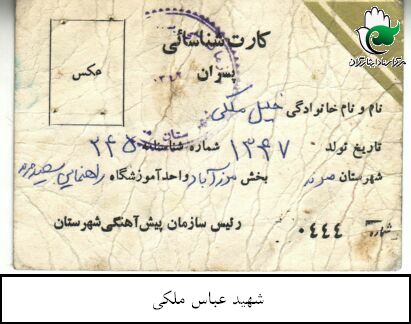 کارت شناسائی
پسران
عکس
مرکز اسناد ایثارگران
نام و نام خانوادگی خلیل ملکی
تاریخ تولد ۱۳۴۷ شماره شناسنامه ۲۴۵
شهرستان بخش آباد واحد آموزشگاه راهنمایی
رئیس سازمان پیش آهنگی شهرستان
شماره ۰۴۴۴
شهید عباس ملکی